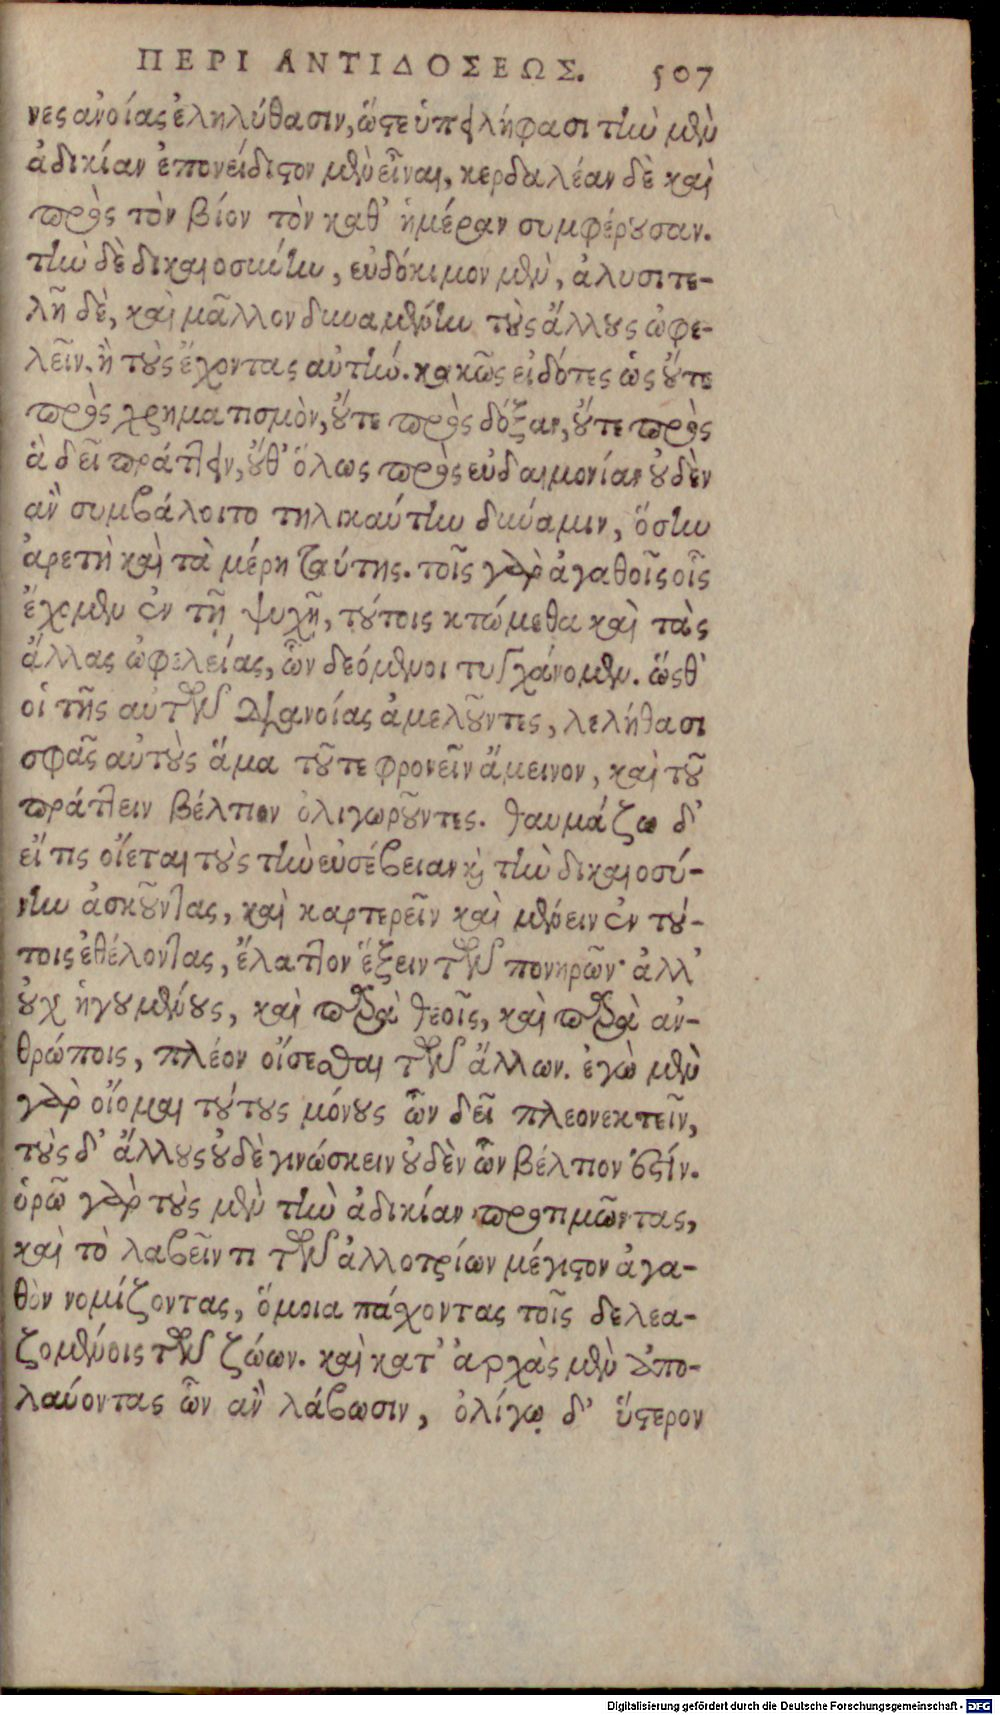 ΠΕΡΙ ΑΝΤΙΔΟΣΕΩΣ. 507
νες ἀνοίας ἐληλύθασιν, ὥστε ὑπειλήφασι τὴν μὲν
ἀδικίαν ἐπονείδιστον μὲν εἶναι, κερδαλέαν δὲ καὶ
πρὸς τὸν βίον τὸν καθ' ἡμέραν συμφέρουσαν.
τὴν δὲ δικαιοσύνην, εὐδόκιμον μὲν, ἀλυσιτε-
λῆ δὲ, καὶ μᾶλλον δυναμένην τοὺς ἄλλους ὠφε-
λεῖν. ἢ τοὺς ἔχοντας αὐτήν. κακῶς εἰδότες ὡς οὔτε
πρὸς χρηματισμὸν, οὔτε πρὸς δόξαν, οὔτε πρὸς
ἃ δεῖ πράττειν, οὔθ' ὅλως πρὸς εὐδαιμονίαν οὐδὲν
ἂν συμβάλοιτο τηλικαύτην δύναμιν, ὅσην
ἀρετὴ καὶ τὰ μέρη ταύτης. τοῖς γὰρ ἀγαθοῖς οἷς
ἔχομεν ἐν τῇ ψυχῇ, τούτοις κτώμεθα καὶ τὰς
ἄλλας ὠφελείας, ὧν δεόμενοι τυγχάνομεν. ὥσθ'
οἱ τῆς αὑτῶν διανοίας ἀμελοῦντες, λελήθασι
σφᾶς αὐτοὺς ἅμα τοῦ τε φρονεῖν ἄμεινον, καὶ τοῦ
πράττειν βέλτιον ὀλιγωροῦντες. θαυμάζω δ'
εἴ τις οἴεται τοὺς τὴν εὐσέβειαν καὶ τὴν δικαιοσύ-
νην ἀσκοῦντας, καὶ καρτερεῖν καὶ μένειν ἐν τού-
τοις ἐθέλοντας, ἔλαττον ἕξειν τῶν πονηρῶν· ἀλλ'
οὐχ ἡγουμένους, καὶ παρὰ θεοῖς, καὶ παρὰ ἀν-
θρώποις, πλέον οἴσεσθαι τῶν ἄλλων. ἐγὼ μὲν
γὰρ οἴομαι τούτους μόνους ὧν δεῖ πλεονεκτεῖν,
τοὺς δ' ἄλλους οὐδὲ γινώσκειν οὐδὲν ὧν βέλτιον ἐστίν.
ὁρῶ γὰρ τοὺς μὲν τὴν ἀδικίαν προτιμῶντας,
καὶ τὸ λαβεῖν τι τῶν ἀλλοτρίων μέγιστον ἀγα-
θὸν νομίζοντας, ὅμοια πάσχοντας τοῖς δελεα-
ζομένοις τῶν ζώων. καὶ κατ' ἀρχὰς μὲν ἀπο-
λαύοντας ὧν ἂν λάβωσιν, ὀλίγῳ δ' ὕστερον
Digitalisierung gefördert durch die Deutsche Forschungsgemeinschaft - DFG